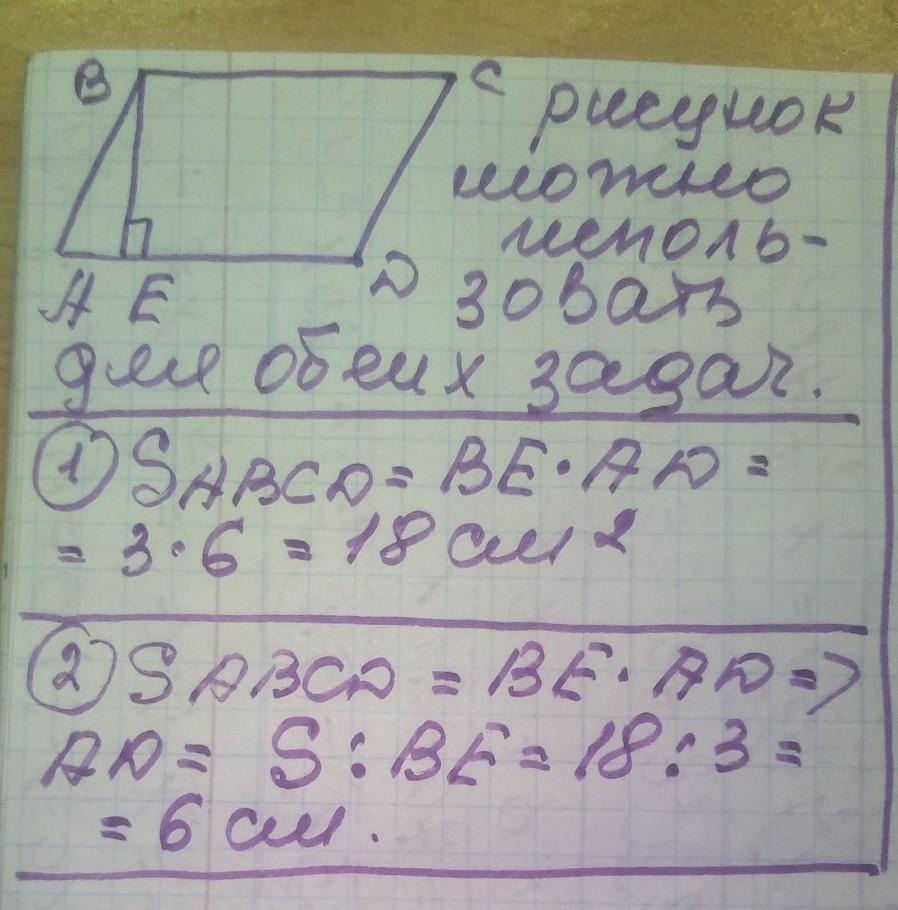 B
C
рисунок
можно
исполь-
A E
D зовать
для обеих задач.
① SABCD = BE · AD =
= 3 · 6 = 18 см 2
② SABCD = BE · AD =>
AD = S : BE = 18 : 3 =
= 6 см.